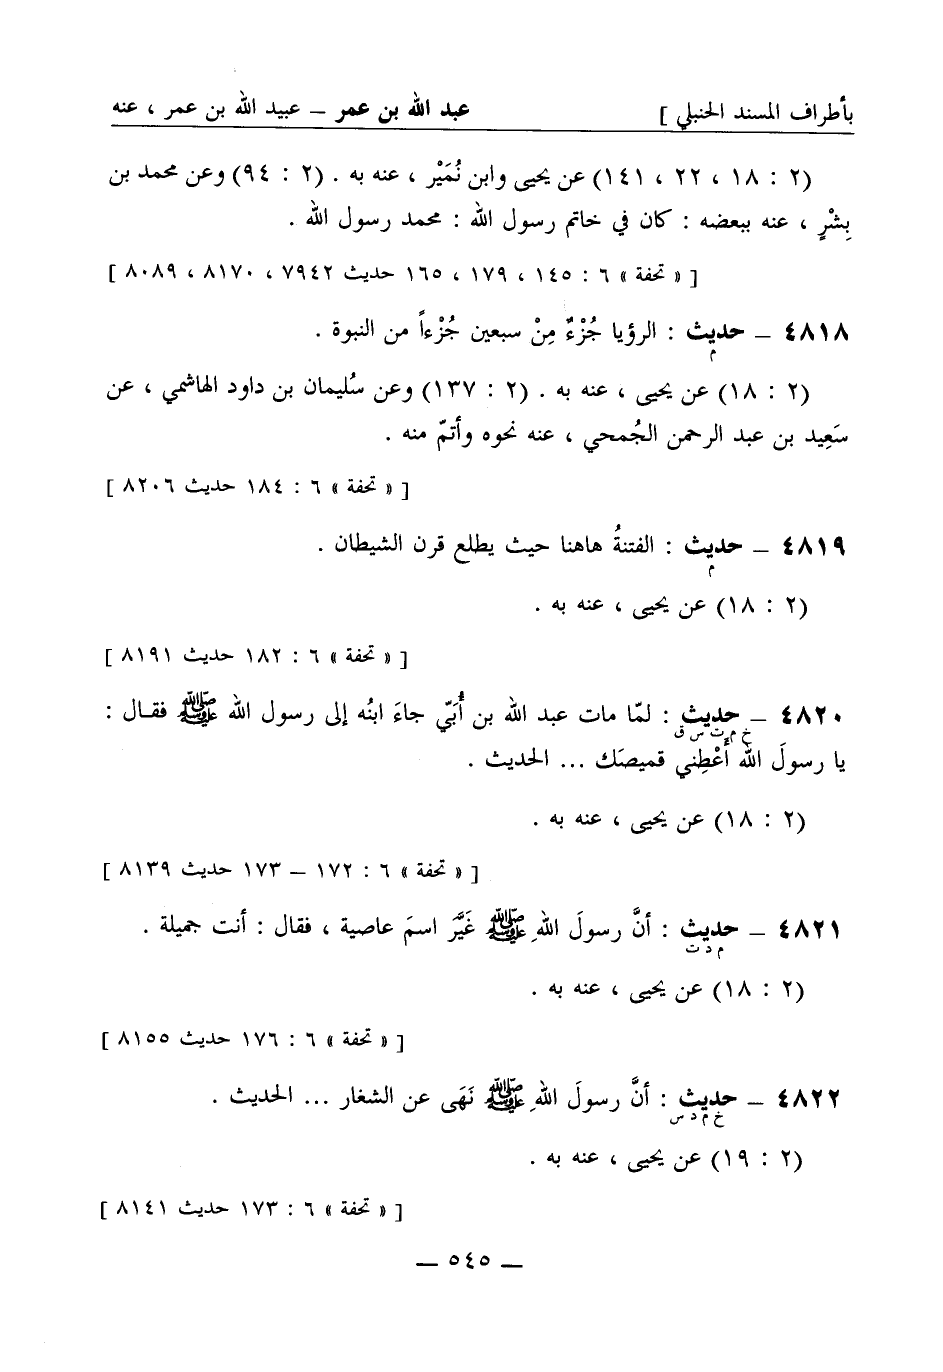 بأطراف المسند الحنبلي ] عبد الله بن عمر – عبيد الله بن عمر ، عنه
(٢ : ١٨ ، ٢٢ ، ١٤١) عن يحيى وابن نُمَيْر ، عنه به . (٢ : ٩٤) وعن محمد بن
بِشْرٍ ، عنه ببعضه : كان في خاتم رسول الله : محمد رسول الله .
[ « تحفة » ٦ : ١٤٥ ، ١٧٩ ، ١٦٥ حديث ٧٩٤٢ ، ٨١٧٠ ، ٨٠٨٩ ]
٤٨١٨ – حديث : الرؤيا جُزْءٌ مِنْ سبعين جُزْءاً من النبوة .
م
(٢ : ١٨) عن يحيى ، عنه به . (٢ : ١٣٧) وعن سُليمان بن داود الهاشمي ، عن
سَعِيد بن عبد الرحمن الجُمحي ، عنه نحوه وأتمّ منه .
[ « تحفة » ٦ : ١٨٤ حديث ٨٢٠٦ ]
٤٨١٩ – حديث : الفتنةُ هاهنا حيث يطلع قرن الشيطان .
م
(٢ : ١٨) عن يحيى ، عنه به .
[ « تحفة » ٦ : ١٨٢ حديث ٨١٩١ ]
٤٨٢٠ – حديث : لمّا مات عبد الله بن أُبَيّ جاءَ ابنُه إلى رسول الله ﷺ فقال :
خ م ت س ق
يا رسولَ الله أَعْطِني قميصَك ... الحديث .
(٢ : ١٨) عن يحيى ، عنه به .
[ « تحفة » ٦ : ١٧٢ – ١٧٣ حديث ٨١٣٩ ]
٤٨٢١ – حديث : أنَّ رسولَ اللهِ ﷺ غَيَّرَ اسمَ عاصية ، فقال : أنت جميلة .
م د ت
(٢ : ١٨) عن يحيى ، عنه به .
[ « تحفة » ٦ : ١٧٦ حديث ٨١٥٥ ]
٤٨٢٢ – حديث : أنَّ رسولَ اللهِ ﷺ نَهَى عن الشغار ... الحديث .
خ م د س
(٢ : ١٩) عن يحيى ، عنه به .
[ « تحفة » ٦ : ١٧٣ حديث ٨١٤١ ]
— ٥٤٥ —